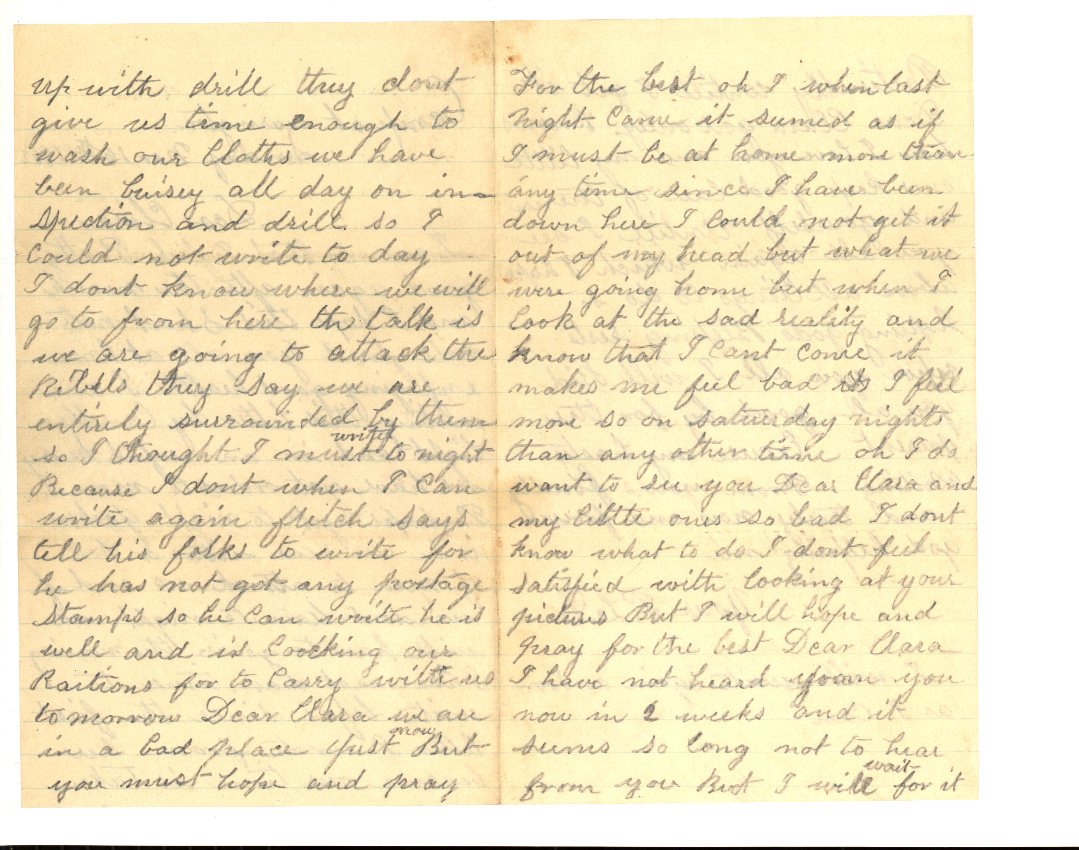 up with drill they dont
give us time enough to
wash our Cloths we have
been buisey all day on in=
spection and drill. so I
Could not write to day
I dont know where we will
go to from here th talk is
we are going to attack the
Rebels they say we are
entirely surrounded by them
so I thought I must write to night
Because I dont when I Can
write again fritch says
tell his folks to write for
he has not got any postage
Stamps so he Can write he is
well and is Coocking our
Raitions for to Carry with us
tomorrow Dear Clara we are
in a bad place just now But
you must hope and pray
For the best oh I when last
Night Came it seemed as if
I must be at home more than
any time since I have been
down here I Could not get it
out of my head but what we
were going home but when I
look at the sad reality and
know that I Cant Come it
makes me feel bad I feel
more so on saturday nights
than any other time oh I do
want to see you Dear Clara and
my little ones so bad I dont
know what to do I dont feel
satisfied with looking at your
pictures But I will hope and
pray for the best Dear Clara
I have not heard you
now in 2 weeks and it
seems so long not to hear
from you But I will wait for it